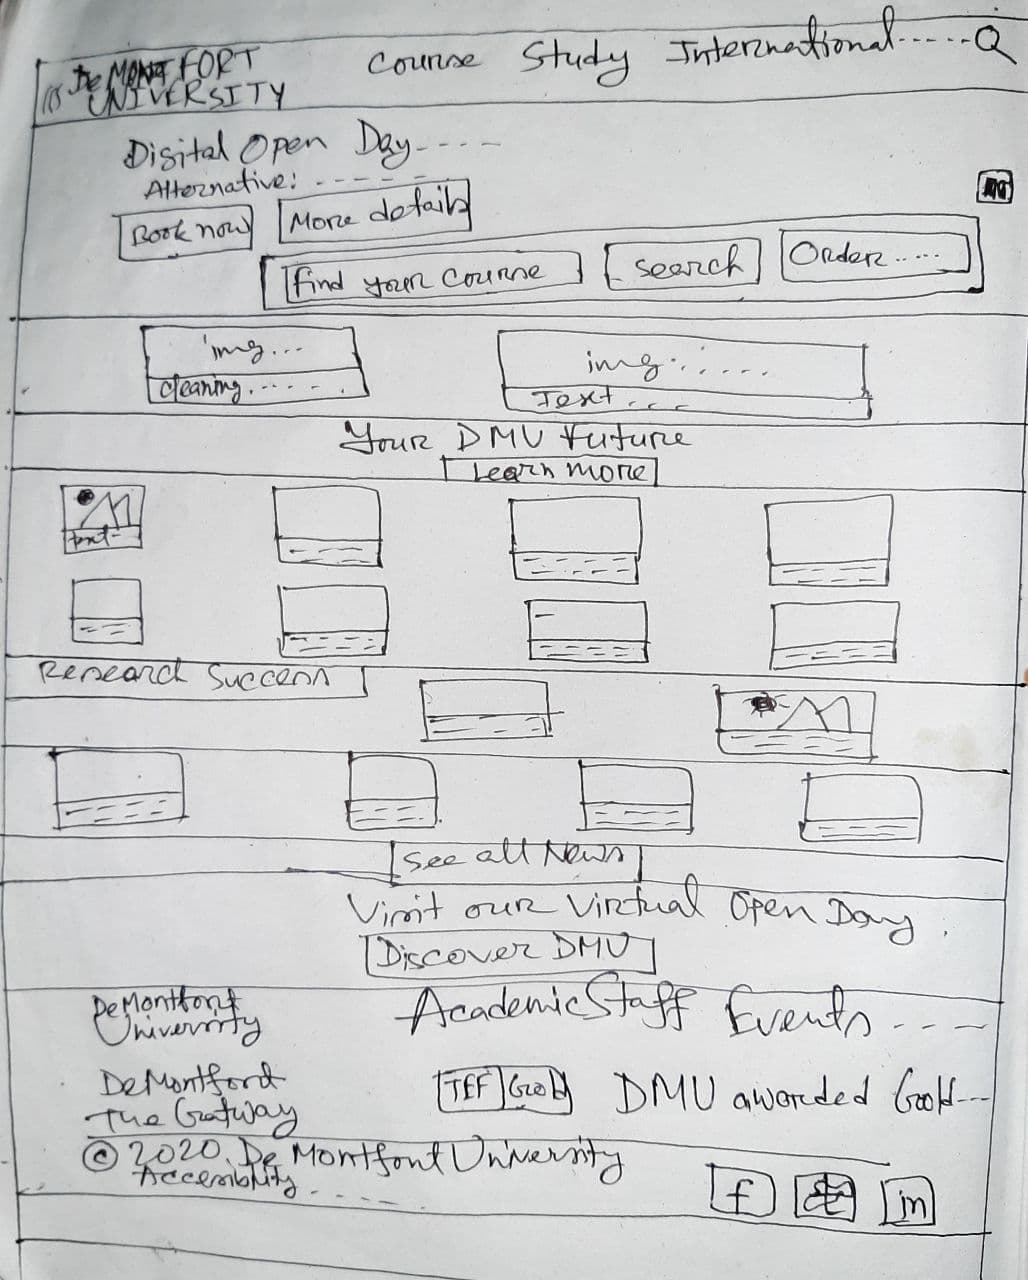 De MONT FORT
UNIVERSITY
Course Study International
Digital Open Day
Alternative:
Book now
More details
Find your course
Search
Order
img...
cleaning
img
Text
Your DMU Future
Learn more
text
Research Success
See all News
Visit our Virtual Open Day
Discover DMU
DeMontfort
University
Academic Staff Events
DeMontford
The Gatway
TEF Gold
DMU awarded Gold
© 2020. De Montfont University
Accessiblity
f
in